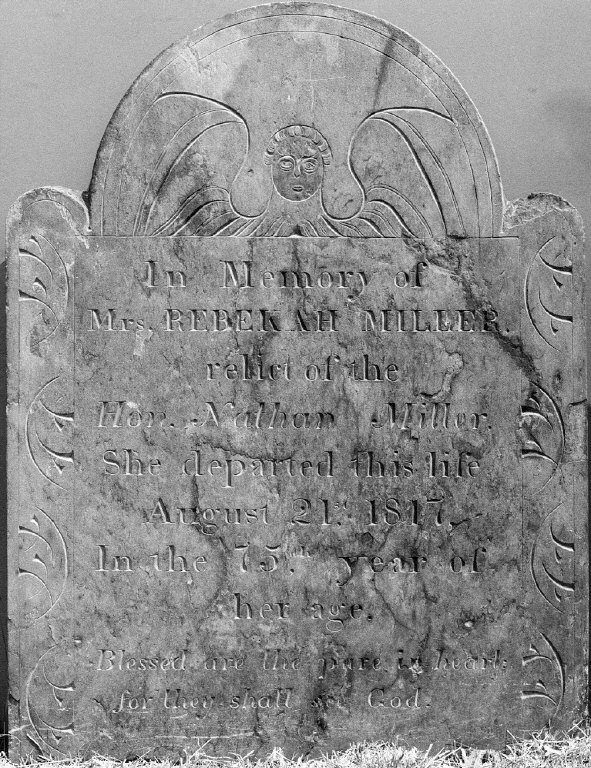 In Memory of
Mrs. REBEKAH MILLER.
relict of the
Hon. Nathan Miller.
She departed this life
August 21st. 1817,
In the 75th. year of
her age.
Blessed are the pure in heart:
for they shall see God.